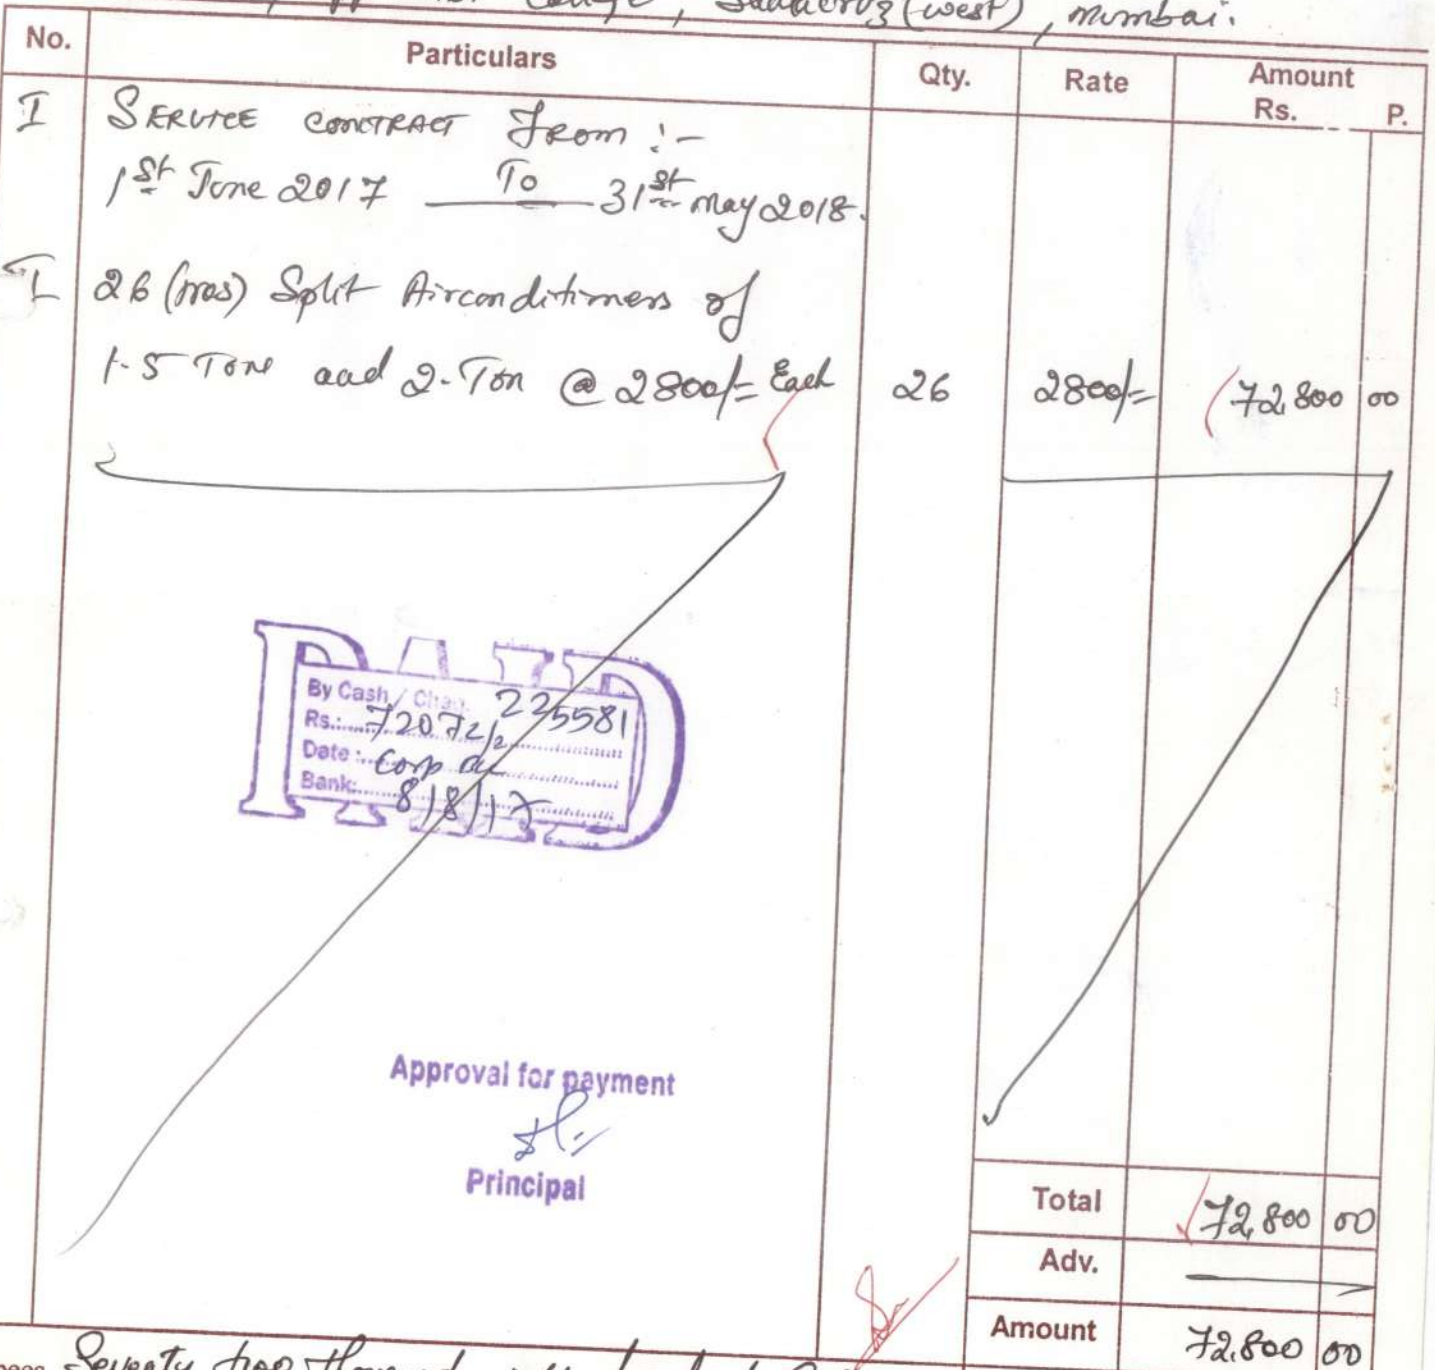 College, Santacruz (west), mumbai.
No. Particulars Qty. Rate Amount Rs. P.
I SERVICE CONTRACT From :-
1st June 2017 To 31st may 2018.
I 26 (nos) Split Airconditioners of
1.5 Tone and 2-Ton @ 2800/= Each 26 2800/= 72,800 00
PAID
By Cash / Chaq. 225581
Rs.: 72072/=
Date: Corp
Bank: 8/8/17
Approval for payment
Principal
Total 72,800 00
Adv.
Amount 72,800 00
Seventy two thousand